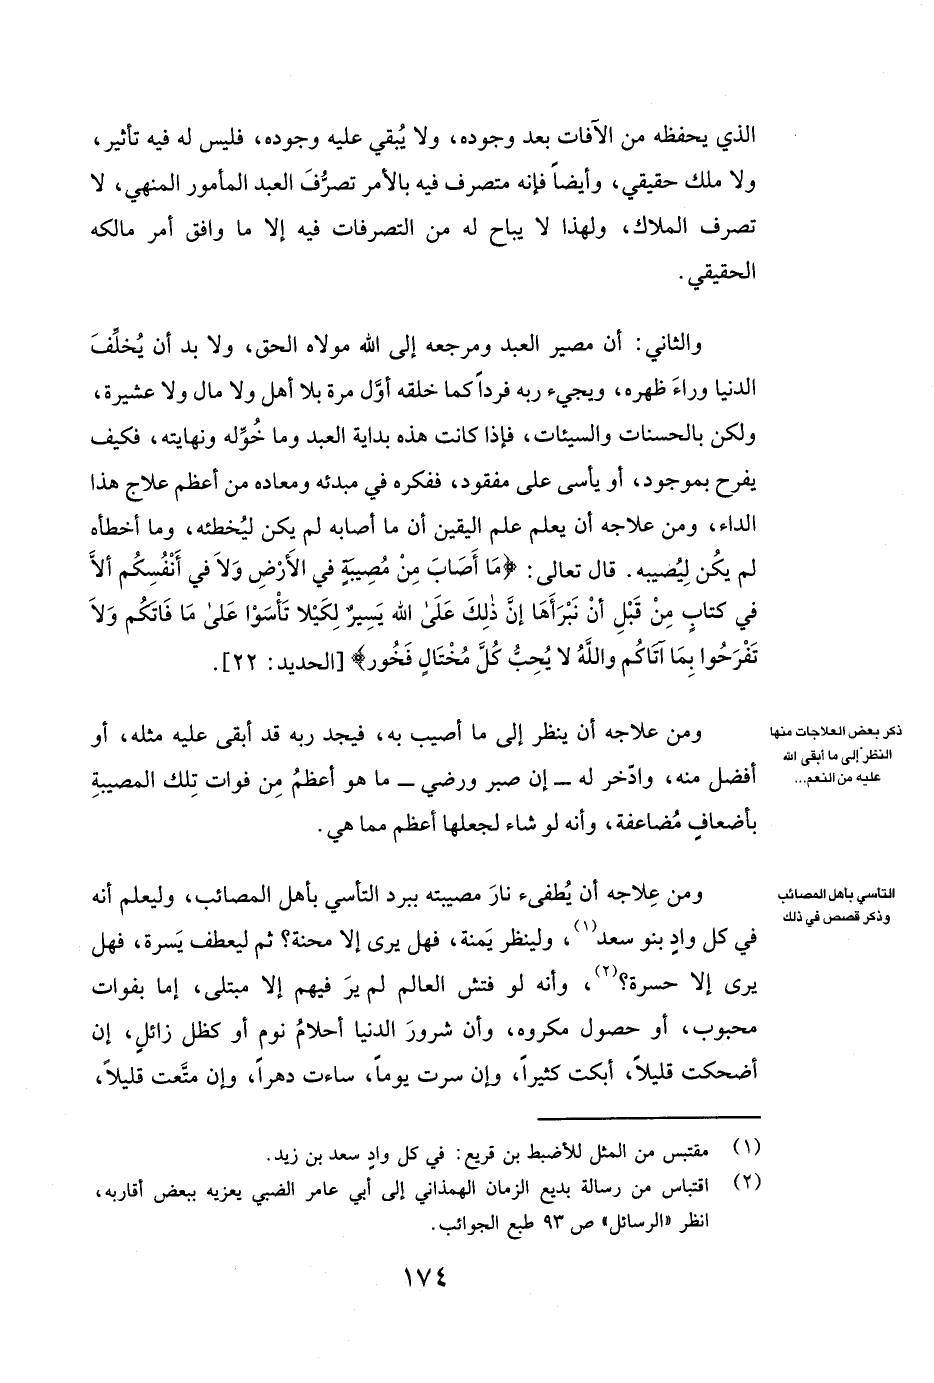 الذي يحفظه من الآفات بعد وجوده، ولا يُبقي عليه وجوده، فليس له فيه تأثير،
ولا ملك حقيقي، وأيضاً فإنه متصرف فيه بالأمر تصرُّفَ العبد المأمور المنهي، لا
تصرف الملاك، ولهذا لا يباح له من التصرفات فيه إلا ما وافق أمر مالكه
الحقيقي.
والثاني: أن مصير العبد ومرجعه إلى الله مولاه الحق، ولا بد أن يُخلِّفَ
الدنيا وراءَ ظهره، ويجيء ربه فرداً كما خلقه أوَّل مرة بلا أهل ولا مال ولا عشيرة،
ولكن بالحسنات والسيئات، فإذا كانت هذه بداية العبد وما خُوِّله ونهايته، فكيف
يفرح بموجود، أو يأسى على مفقود، ففكره في مبدئه ومعاده من أعظم علاج هذا
الداء، ومن علاجه أن يعلم علم اليقين أن ما أصابه لم يكن ليُخطئه، وما أخطأه
لم يكُن لِيُصيبه. قال تعالى: ﴿مَا أَصَابَ مِنْ مُصِيبَةٍ في الأَرْضِ وَلاَ في أَنْفُسِكُم ألاَّ
في كتابٍ مِنْ قَبْلِ أنْ نَبْرَأَهَا إنَّ ذٰلِكَ عَلَىٰ الله يَسِيرٌ لِكَيْلا تَأْسَوْا عَلىٰ مَا فَاتَكُم وَلاَ
تَفْرَحُوا بِمَا آتَاكُم واللَّهُ لا يُحِبُّ كُلَّ مُخْتَالٍ فَخُور﴾ [الحديد: ٢٢].
ومن علاجه أن ينظر إلى ما أصيب به، فيجد ربه قد أبقى عليه مثله، أو
أفضل منه، وادّخر له ــ إن صبر ورضي ــ ما هو أعظمُ مِن فوات تِلك المصيبةِ
بأضعافٍ مُضاعفة، وأنه لو شاء لجعلها أعظم مما هي.
ذكر بعض العلاجات منها
النظر إلى ما أبقى الله
عليه من النعم...
ومن عِلاجه أن يُطفىء نارَ مصيبته ببرد التأسي بأهل المصائب، وليعلم أنه
في كل وادٍ بنو سعد(١)، ولينظر يَمنة، فهل يرى إلا محنة؟ ثم ليعطف يَسرة، فهل
يرى إلا حسرة؟(٢)، وأنه لو فتش العالم لم يرَ فيهم إلا مبتلى، إما بفوات
محبوب، أو حصول مكروه، وأن شرورَ الدنيا أحلامُ نوم أو كظل زائلٍ، إن
أضحكت قليلاً، أبكت كثيراً، وإن سرت يوماً، ساءت دهراً، وإن متَّعت قليلاً،
التأسي بأهل المصائب
وذكر قصص في ذلك
(١) مقتبس من المثل للأضبط بن قريع: في كل وادٍ سعد بن زيد.
(٢) اقتباس من رسالة بديع الزمان الهمذاني إلى أبي عامر الضبي يعزيه ببعض أقاربه،
انظر «الرسائل» ص ٩٣ طبع الجوائب.
١٧٤